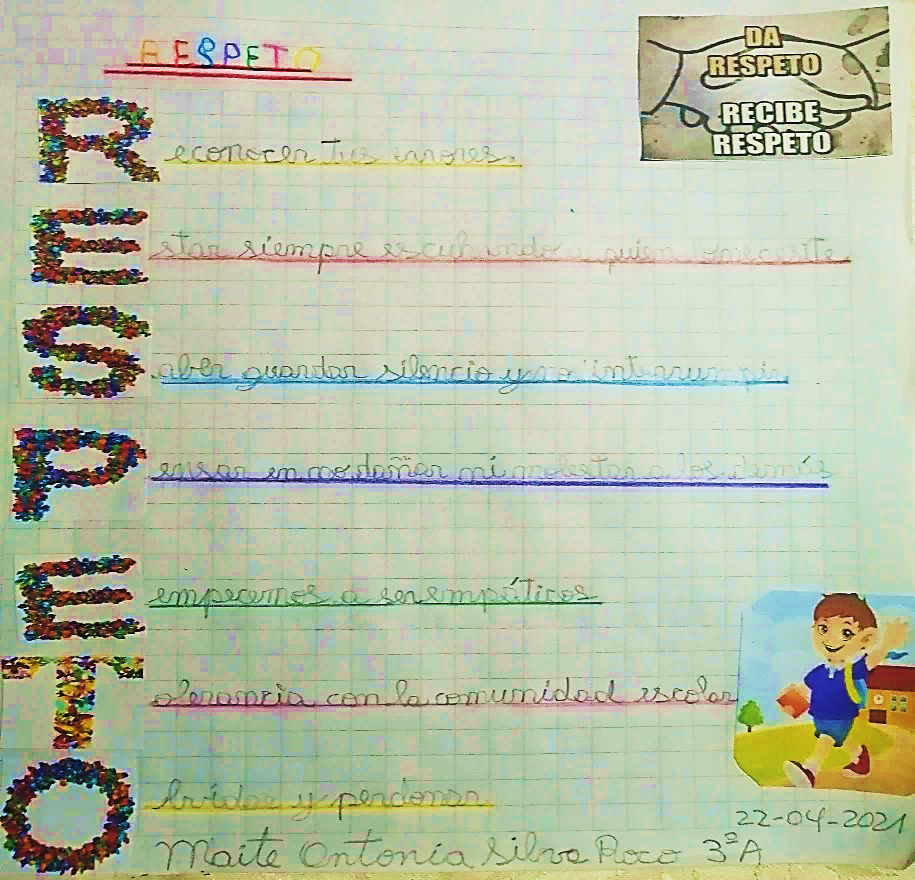 RESPETO
DA
RESPETO
RECIBE
RESPETO
Reconocer tus errores.
Estar siempre escuhando a quien lo necesite
Saber guardar silencio y no interrumpir
Pensar en no dañar ni molestar a los demás
Eempecemos a ser empáticos
Tolerancia con la comunidad escolar
Olvidar y perdonar
22-04-2021
Maite Antonia Silva Roco 3ºA